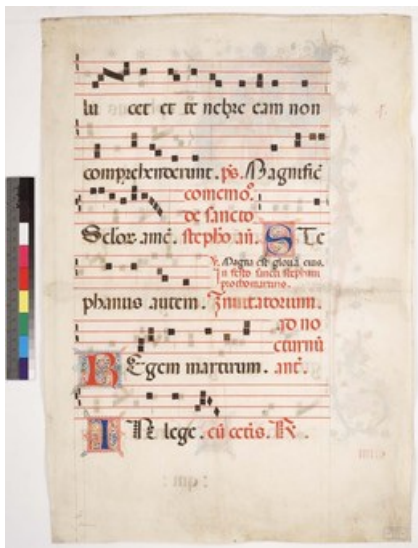 lu cet et te nebre eam non
comprehenderunt. ps. Magnific̄
comemo.
de sancto
Seclor. amē. stepho añ. S Te
℣. Magna est gloria eius.
In festo sancti stephani
prothomartiris.
phanus autem. Inuitatorium.
ad no
cturnū
R Egem martirum. ant.
I N lege. cū cetis. R.